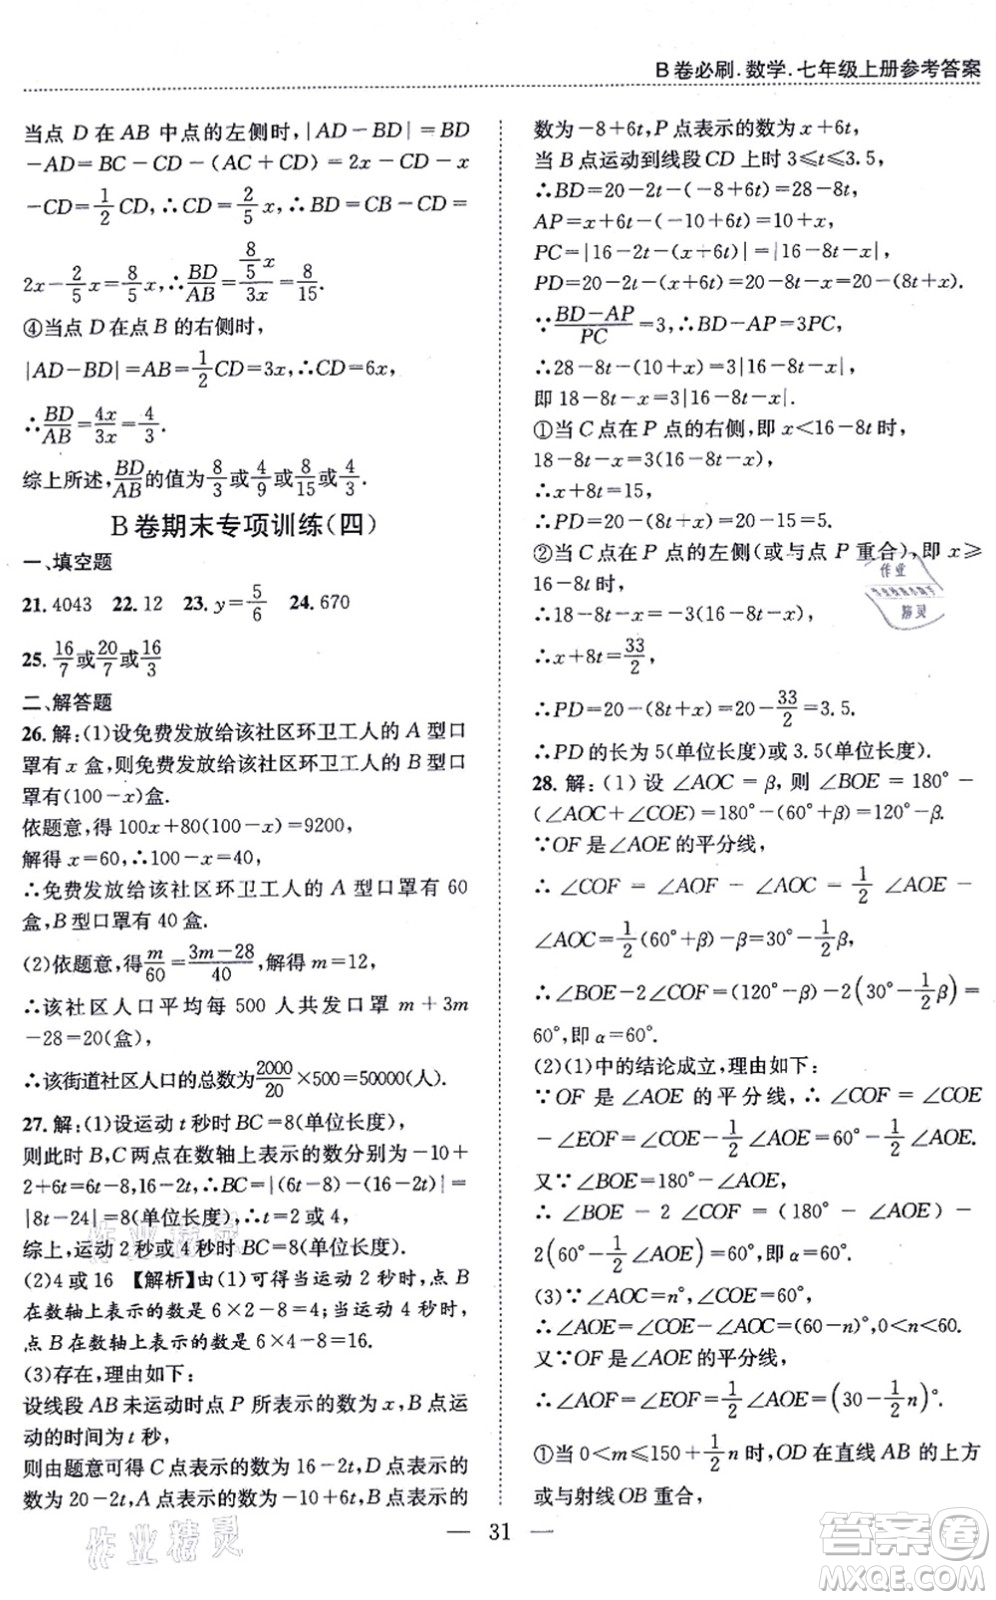 B卷必刷.数学.七年级上册参考答案
当点 D 在 AB 中点的左侧时,|AD－BD|＝BD
－AD＝BC－CD－(AC＋CD)＝2x－CD－x
－CD＝1/2 CD,∴CD＝2/5 x,∴BD＝CB－CD＝
2x－2/5 x＝8/5 x,∴BD/AB＝(8/5 x)/3x＝8/15.
④当点 D 在点 B 的右侧时,
|AD－BD|＝AB＝1/2 CD＝3x,∴CD＝6x,
∴BD/AB＝4x/3x＝4/3.
综上所述,BD/AB的值为8/3或4/9或8/15或4/3.
B卷期末专项训练(四)
一、填空题
21. 4043 22. 12 23. y＝5/6 24. 670
25. 16/7或20/7或16/3
二、解答题
26. 解:(1)设免费发放给该社区环卫工人的 A 型口
罩有 x 盒,则免费发放给该社区环卫工人的 B 型口
罩有(100－x)盒.
依题意,得 100x＋80(100－x)＝9200,
解得 x＝60,∴100－x＝40,
∴免费发放给该社区环卫工人的 A 型口罩有 60
盒,B 型口罩有 40 盒.
(2)依题意,得m/60＝(3m－28)/40,解得 m＝12,
∴该社区人口平均每 500 人共发口罩 m＋3m
－28＝20(盒),
∴该街道社区人口的总数为2000/20×500＝50000(人).
27. 解:(1)设运动 t 秒时 BC＝8(单位长度),
则此时 B,C 两点在数轴上表示的数分别为－10＋
2＋6t＝6t,16－2t,∴BC＝|(6t－8)－(16－2t)|＝
|8t－24|＝8(单位长度),
综上,运动 2 秒或 4 秒时 BC＝8(单位长度).
(2)4 或 16 【解析】由(1)可得当运动 2 秒时,点 B
在数轴上表示的数是 6×2－8＝4;当运动 4 秒时,
点 B 在数轴上表示的数是 6×4－8＝16.
(3)存在,理由如下:
设线段 AB 未运动时点 P 所表示的数为 x,B 点运
动的时间为 t 秒,
则由题意可得 C 点表示的数为 16－2t,D 点表示的
数为 20－2t,A 点表示的数为－10＋6t,B 点表示的
数为－8＋6t,P 点表示的数为 x＋6t,
当 B 点运动到线段 CD 上时 3⩽t⩽3.5,
∴BD＝20－2t－(－8＋6t)＝28－8t,
AP＝x＋6t－(－10＋6t)＝10＋x,
PC＝|16－2t－(x＋6t)|＝|16－8t－x|,
PD＝20－2t－(x＋6t)＝20－8t－x＝20－(8t＋x).
∵(BD－AP)/PC＝3,∴BD－AP＝3PC,
∴28－8t－(10＋x)＝3|16－8t－x|,
即 18－8t－x＝3|16－8t－x|.
①当 C 点在 P 点的右侧,即 x＜16－8t 时,
18－8t－x＝3(16－8t－x),
∴x＋8t＝15,
∴PD＝20－(8t＋x)＝20－15＝5.
②当 C 点在 P 点的左侧(或与点 P 重合),即 x⩾
16－8t 时,
∴18－8t－x＝－3(16－8t－x),
∴x＋8t＝33/2,
∴PD＝20－(8t＋x)＝20－33/2＝3.5.
∴PD 的长为 5(单位长度)或 3.5(单位长度).
28. 解:(1) 设 ∠AOC＝β, 则 ∠BOE＝180°－
(∠AOC＋∠COE)＝180°－(60°＋β)＝120°－β.
∵OF 是∠AOE 的平分线,
∴ ∠COF ＝ ∠AOF － ∠AOC ＝ 1/2 ∠AOE －
∠AOC＝1/2(60°＋β)－β＝30°－1/2β,
∴∠BOE－2∠COF＝(120°－β)－2(30°－1/2β)＝
60°,即 α＝60°.
(2)(1)中的结论成立,理由如下:
∵ OF 是 ∠AOE 的平分线, ∴ ∠COF ＝ ∠COE
－∠EOF＝∠COE－1/2∠AOE＝60°－1/2∠AOE.
又∵∠BOE＝180°－∠AOE,
∴∠BOE－2 ∠COF＝(180°－∠AOE)－
2(60°－1/2∠AOE)＝60°,即 α＝60°.
(3)∵∠AOC＝n°,∠COE＝60°,
∴∠AOE＝∠COE－∠AOC＝(60－n)°,0＜n＜60.
又∵OF 是∠AOE 的平分线,
∴∠AOF＝∠EOF＝1/2∠AOE＝(30－1/2n)°.
①当 0＜m⩽150＋1/2n 时,OD 在直线 AB 的上方
或与射线 OB 重合,
— 31 —
作业精灵
答案圈
MXQE.COM